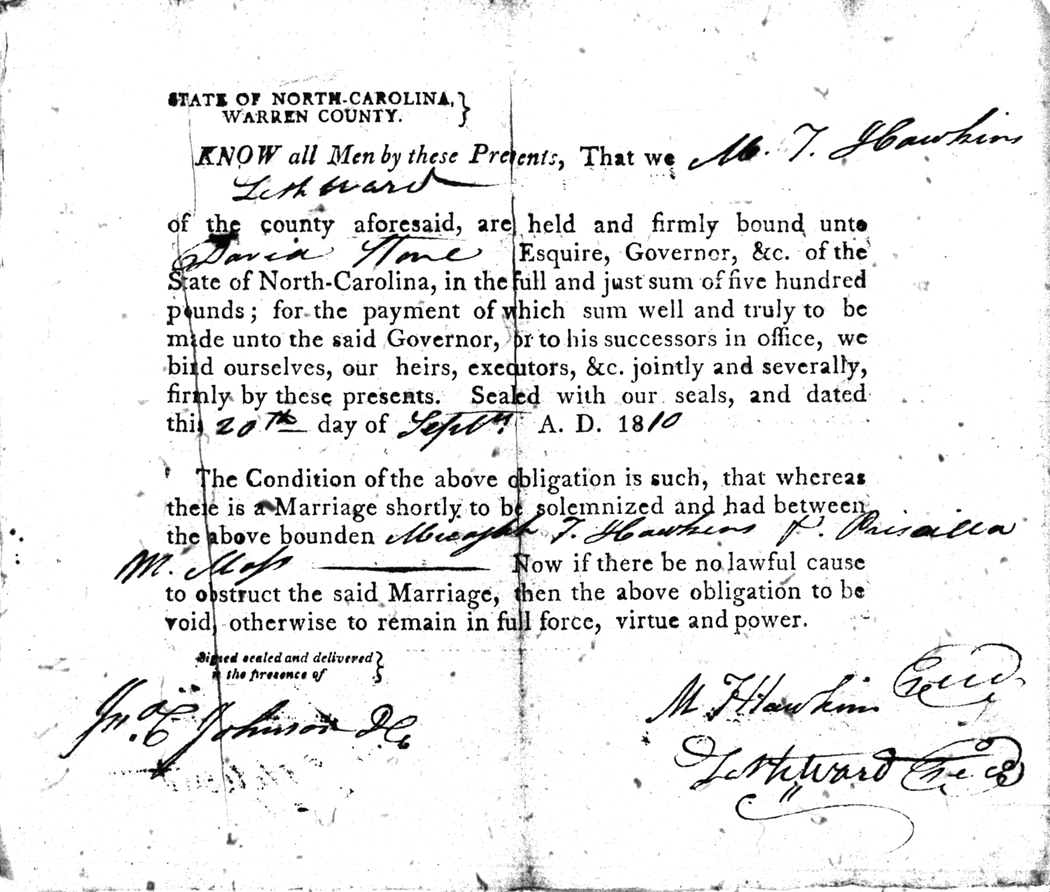 STATE OF NORTH-CAROLINA,
WARREN COUNTY.
KNOW all Men by these Presents, That we M. T. Hawkins
Seth Ward
of the county aforesaid, are held and firmly bound unto
David Stone Esquire, Governor, &c. of the
State of North-Carolina, in the full and just sum of five hundred
pounds; for the payment of which sum well and truly to be
made unto the said Governor, or to his successors in office, we
bind ourselves, our heirs, executors, &c. jointly and severally,
firmly by these presents. Sealed with our seals, and dated
this 20th day of Septr. A. D. 1810
The Condition of the above obligation is such, that whereas
there is a Marriage shortly to be solemnized and had between
the above bounden Micajah T. Hawkins & Priscilla
M. Moss Now if there be no lawful cause
to obstruct the said Marriage, then the above obligation to be
void, otherwise to remain in full force, virtue and power.
Signed sealed and delivered
in the presence of
Jno. C. Johnson DC
M T Hawkins Seal
Seth Ward Seal